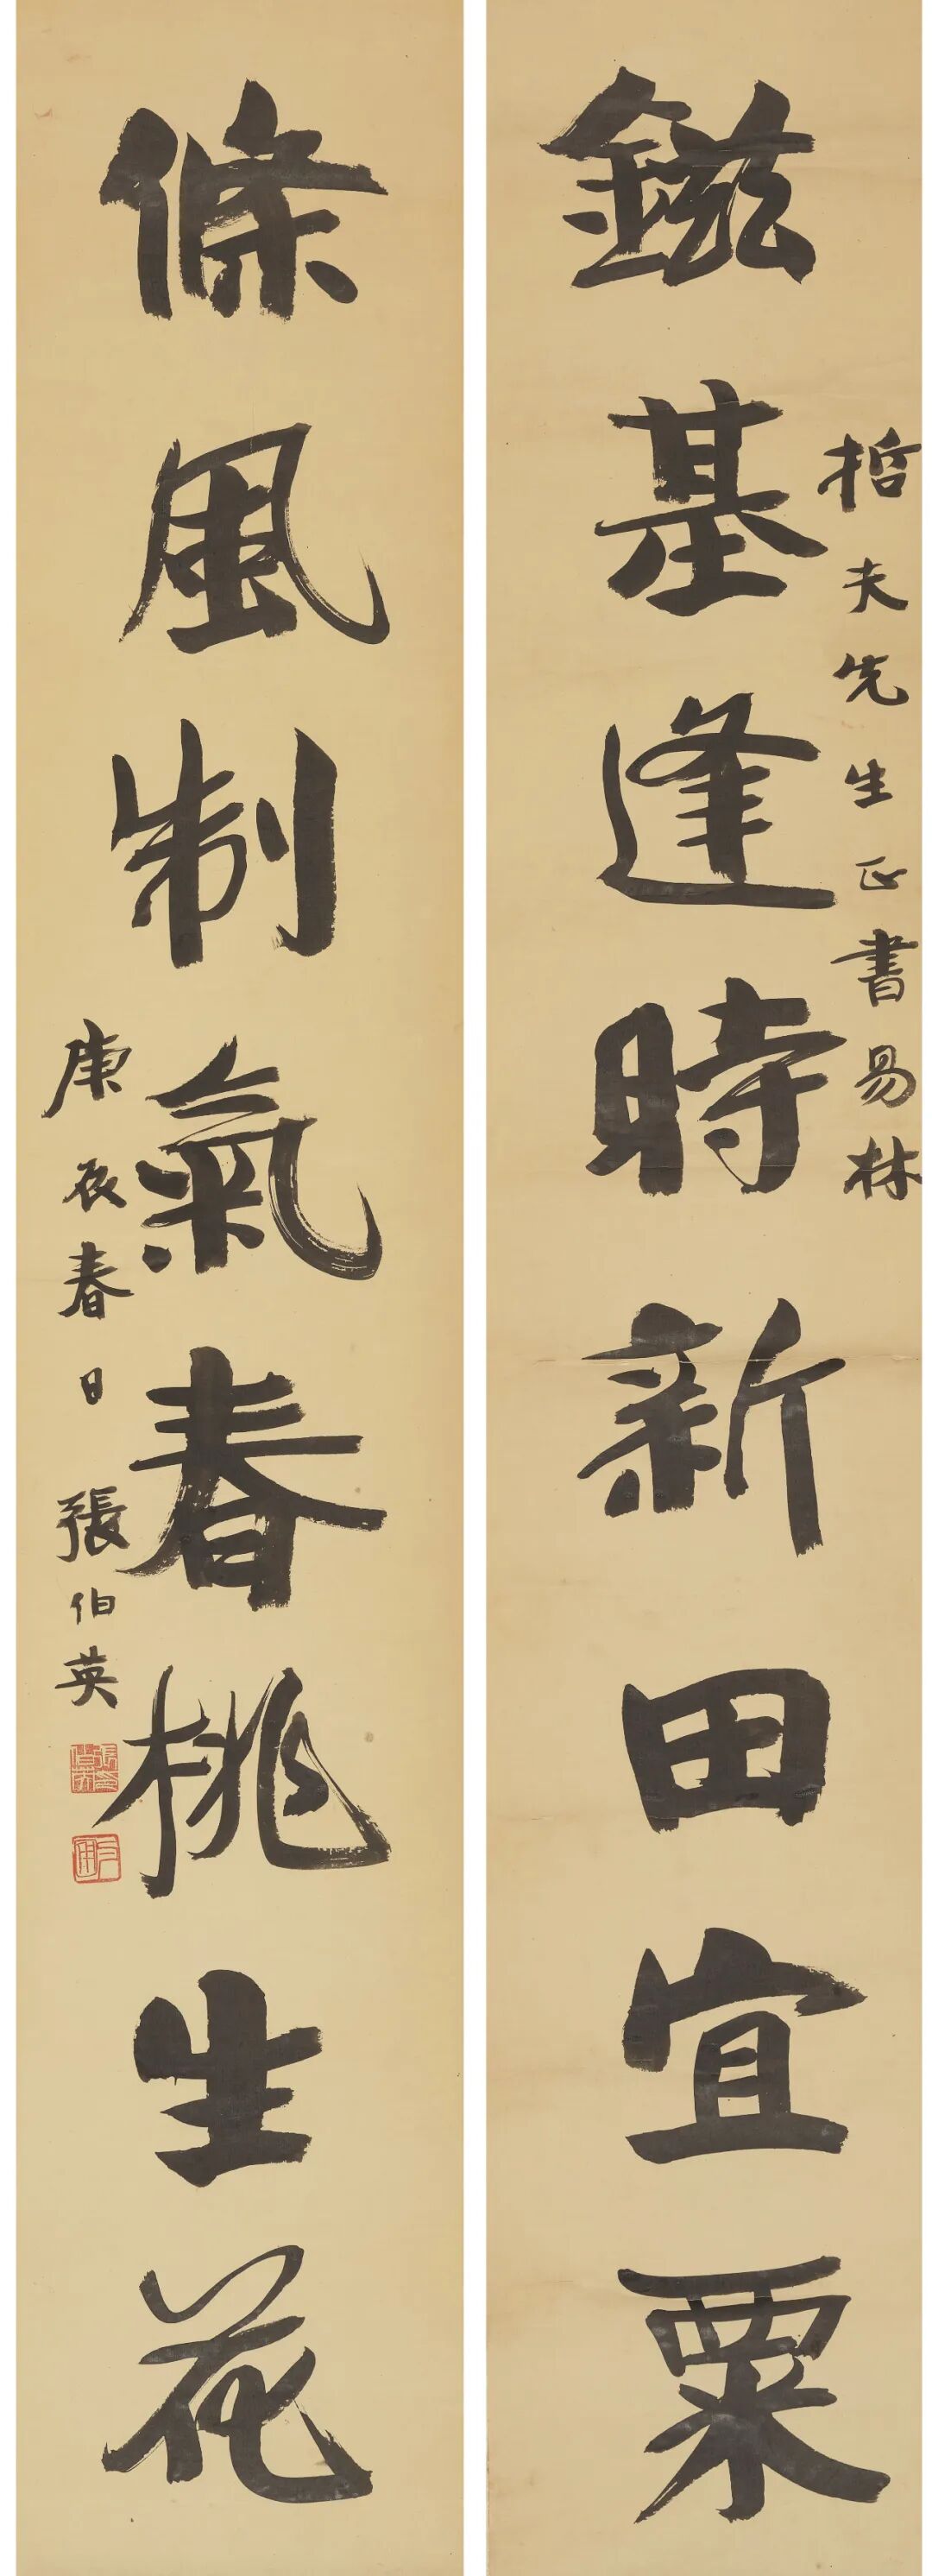 哲夫先生正書易林
鎡基逢時新田宜粟
條風制氣春桃生花
庚辰春日張伯英